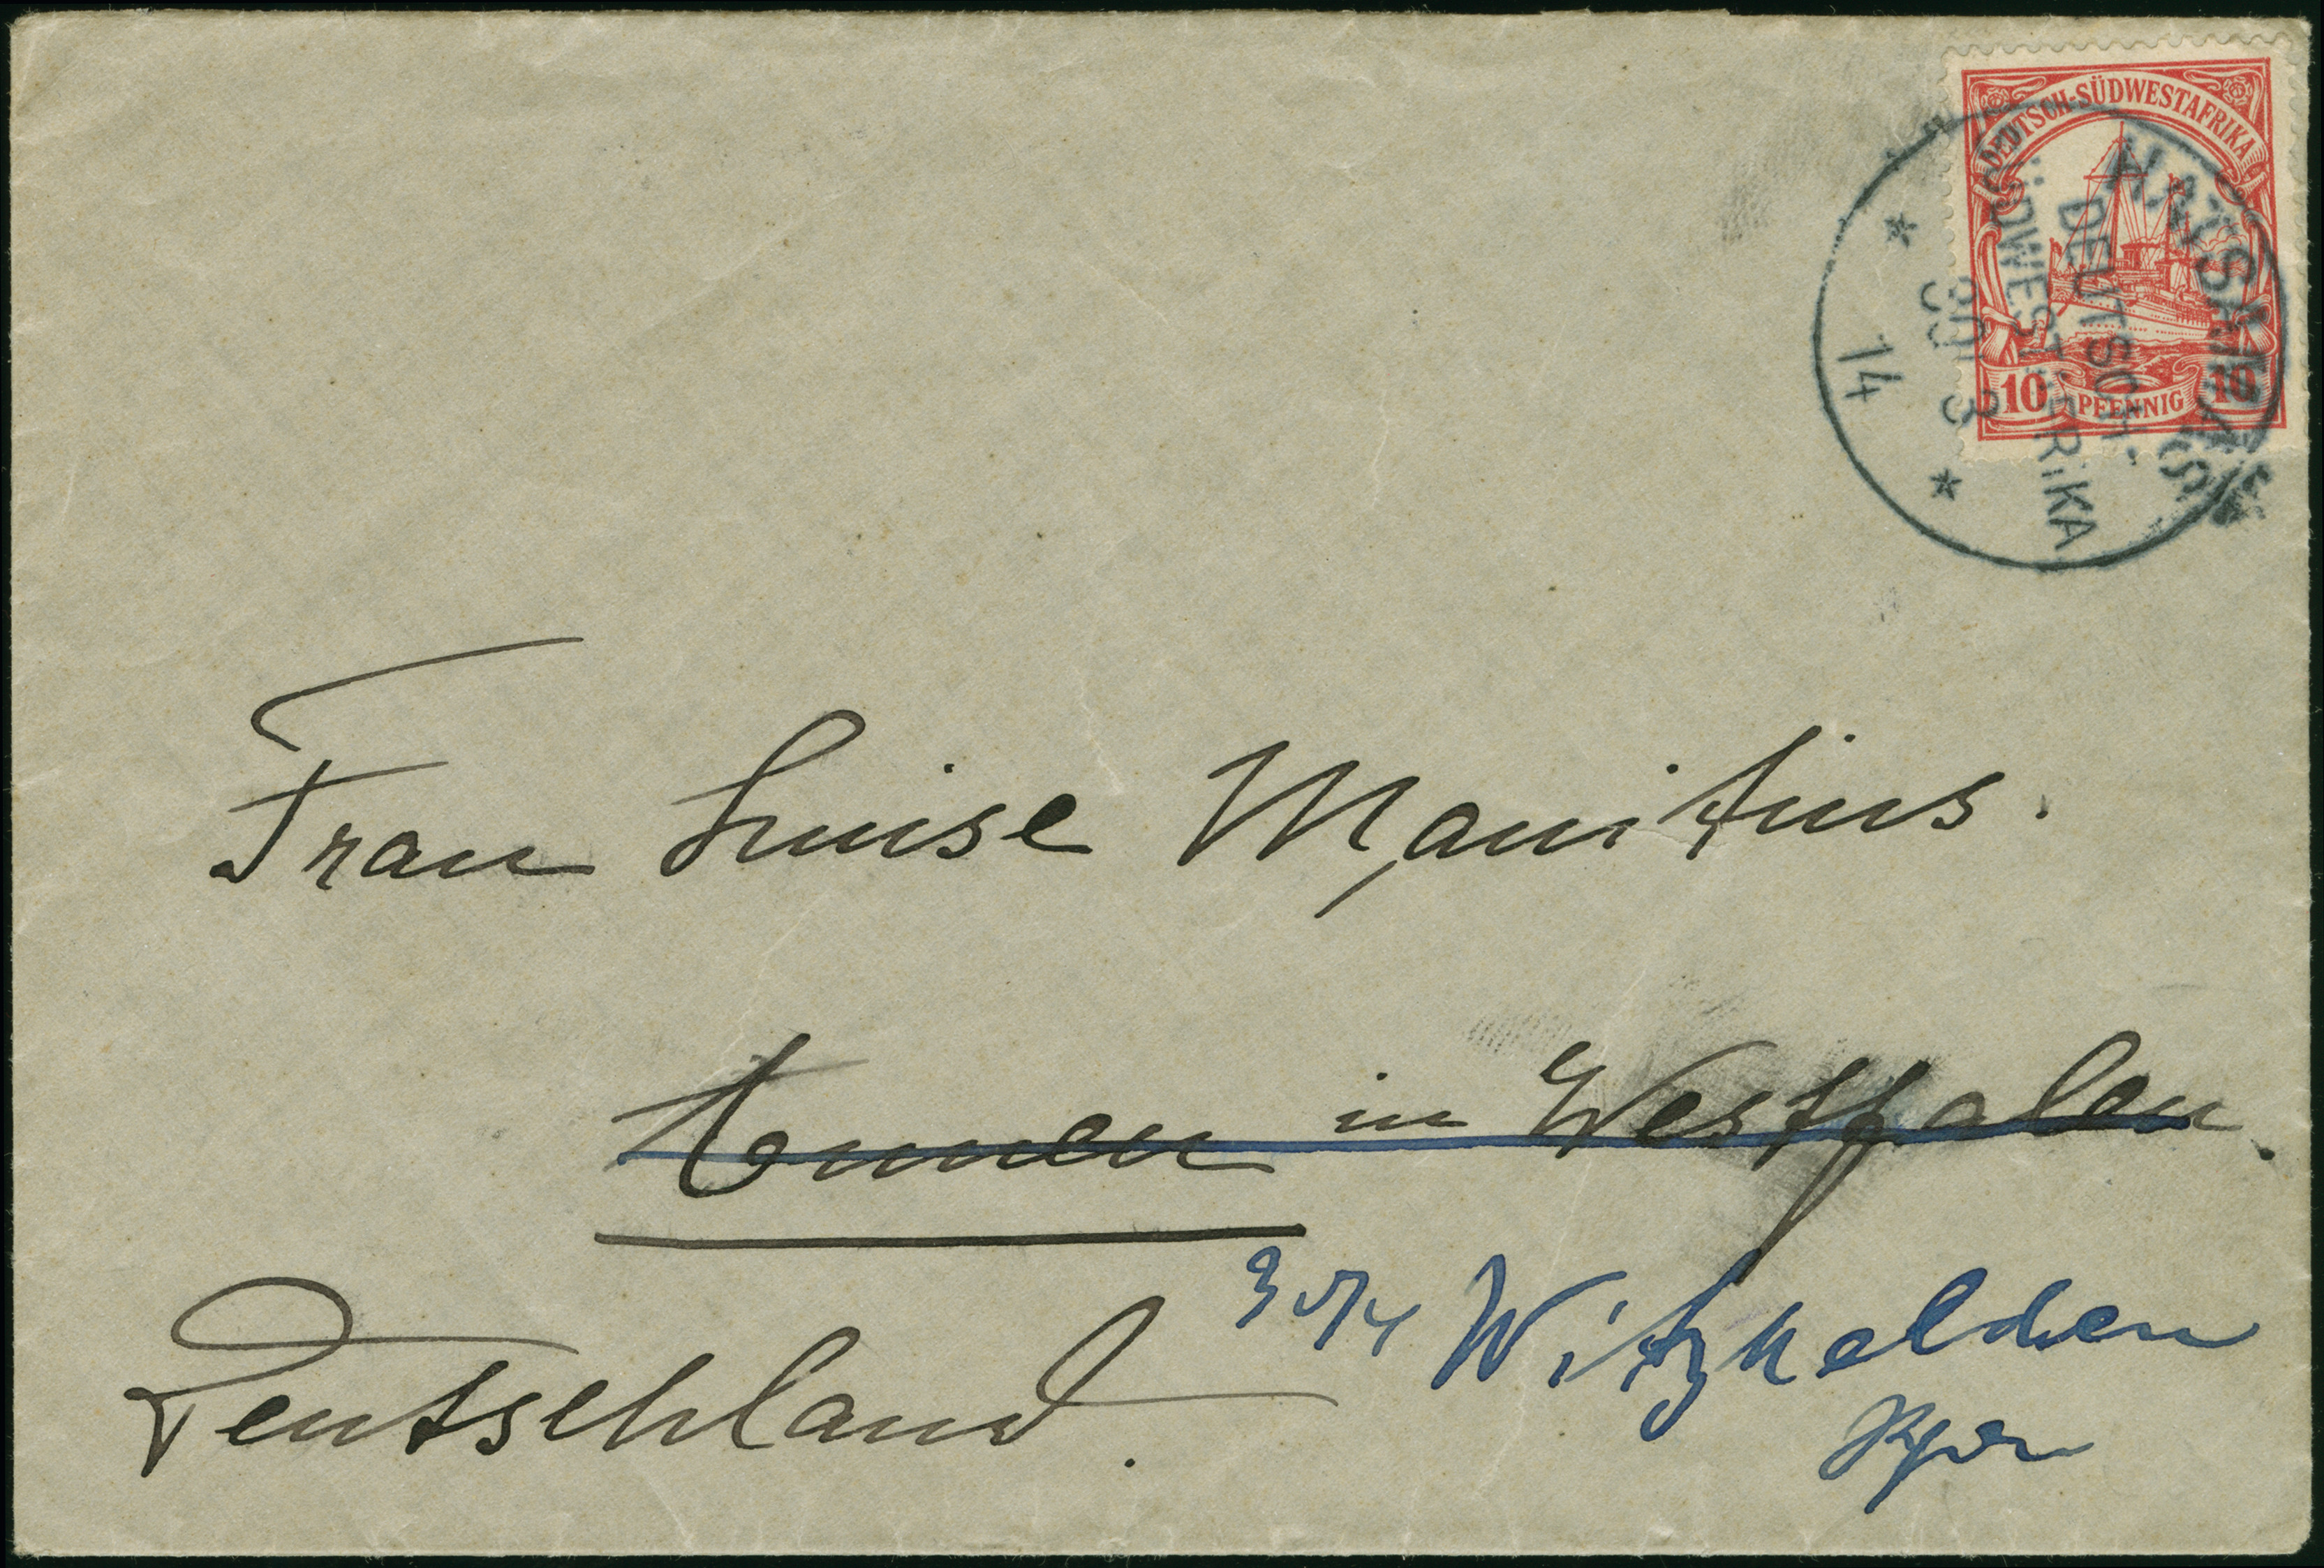 DEUTSCH-SÜDWESTAFRIKA
10 PFENNIG 10
DEUTSCH-
SÜDWESTAFRiKA
3
14
Frau Luise Manitius.
Annen in Westfalen.
Deutschland.
Witzhelden